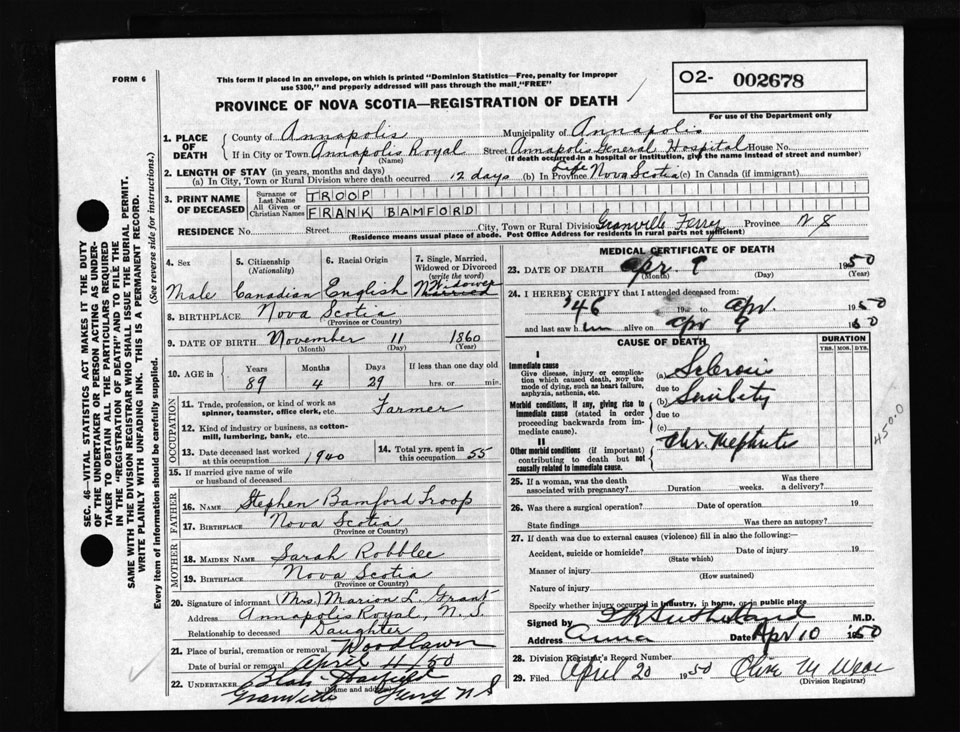 FORM 6
This form if placed in an envelope, on which is printed "Dominion Statistics—Free, penalty for improper
use $300," and properly addressed will pass through the mail "FREE"
O2- 002678
For use of the Department only
PROVINCE OF NOVA SCOTIA—REGISTRATION OF DEATH
SEC. 46—VITAL STATISTICS ACT MAKES IT THE DUTY
OF THE UNDERTAKER OR PERSON ACTING AS UNDER-
TAKER TO OBTAIN ALL THE PARTICULARS REQUIRED
IN THE "REGISTRATION OF DEATH" AND TO FILE THE
SAME WITH THE DIVISION REGISTRAR WHO SHALL ISSUE THE BURIAL PERMIT.
WRITE PLAINLY WITH UNFADING INK. THIS IS A PERMANENT RECORD.
Every item of information should be carefully supplied. (See reverse side for instructions.)
1. PLACE OF DEATH
County of Annapolis Municipality of Annapolis
If in City or Town Annapolis Royal Street Annapolis General Hospital House No.
(Name) (If death occurred in a hospital or institution, give the name instead of street and number)
2. LENGTH OF STAY (in years, months and days)
(a) In City, Town or Rural Division where death occurred 12 days (b) In Province Life Nova Scotia (c) In Canada (if immigrant)
3. PRINT NAME OF DECEASED
Surname or Last Name TROOP
All Given or Christian Names FRANK BAMFORD
RESIDENCE No. Street City, Town or Rural Division Granville Ferry Province N S
(Residence means usual place of abode. Post Office Address for residents in rural parts not sufficient)
4. Sex
Male
5. Citizenship
(Nationality)
Canadian
6. Racial Origin
English
7. Single, Married,
Widowed or Divorced
(write the word)
Widower
Married
8. BIRTHPLACE Nova Scotia
(Province or Country)
9. DATE OF BIRTH November 11 1860
(Month) (Day) (Year)
10. AGE in Years Months Days If less than one day old
89 4 29 hrs. or min.
OCCUPATION
11. Trade, profession, or kind of work as
spinner, teamster, office clerk, etc. Farmer
12. Kind of industry or business, as cotton-
mill, lumbering, bank, etc.
13. Date deceased last worked
at this occupation 1940
14. Total yrs. spent in
this occupation 55
15. If married give name of wife
or husband of deceased
FATHER
16. Name Stephen Bamford Troop
17. Birthplace Nova Scotia
(Province or Country)
MOTHER
18. Maiden Name Sarah Robblee
19. Birthplace Nova Scotia
(Province or Country)
20. Signature of informant (Mrs.) Marion L. Grant
Address Annapolis Royal, N.S.
Relationship to deceased Daughter
21. Place of burial, cremation or removal Woodlawn
Date of burial or removal April 11/50
22. Undertaker
(Name and address)
Granville Ferry N S
MEDICAL CERTIFICATE OF DEATH
23. DATE OF DEATH Apr. 9 1950
(Month) (Day) (Year)
24. I HEREBY CERTIFY that I attended deceased from:
'46 19 to Apr. 1950
and last saw him alive on Apr 9 1950
CAUSE OF DEATH
DURATION
YRS. MOS. DYS.
I
Immediate cause
Give disease, injury or complica-
tion which caused death, not the
mode of dying, such as heart failure,
asphyxia, asthenia, etc.
(a) Sclerosis
due to
Morbid conditions, if any, giving rise to
immediate cause (stated in order
proceeding backwards from im-
mediate cause).
(b) Senility
due to
(c)
II
Other morbid conditions (if important)
contributing to death but not
causally related to immediate cause.
Chr. Nephritis
450.0
25. If a woman, was the death
associated with pregnancy? Duration weeks. Was there
a delivery?
26. Was there a surgical operation? Date of operation 19
State findings Was there an autopsy?
27. If death was due to external causes (violence) fill in also the following:
Accident, suicide or homicide? Date of injury 19
(State which)
Manner of injury
(How sustained)
Nature of injury
Specify whether injury occurred in industry, in home, or in public place
Signed by Sutherland M.D.
Address Anna Date Apr 10 1950
28. Division Registrar's Record Number
29. Filed April 20 1950 Olive M Wear
(Division Registrar)